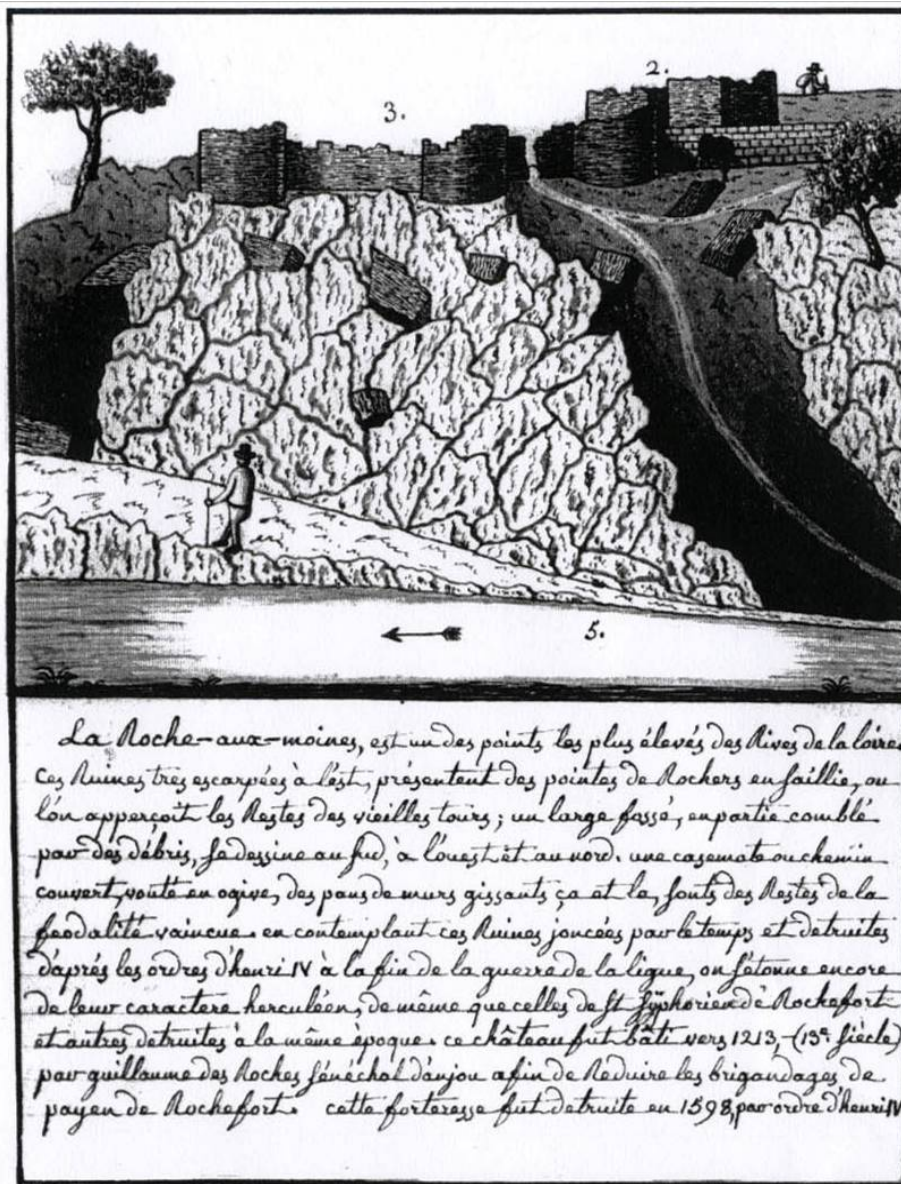 2.
3.
4
4
5.
La Roche-aux-moines, est un des points les plus élevés des Rives de la loire
Ces Ruines tres escarpées à l'est, présentent des pointes de Rochers en saillie, ou
l'on apperçoit les Restes des vieilles tours ; un large fossé, en partie comblé
par des débris, se dessine au sud, à l'ouest et au nord. une casemate ou chemin
couvert, vouté en ogive, des pans de murs gissants ça et la, sonts des Restes de la
feodalité vaincue. en contemplant ces Ruines joncées par le temps et detruites
d'aprés les ordres d'henri IV à la fin de la guerre de la ligue, on s'étonne encore
de leur caractere herculéen, de même que celles de St Syphorien de Rochefort
et autres detruites à la même èpoque. ce château fut bâti vers 1213, - (13e siècle)
par guillaume des Roches sénéchal d'anjou afin de Réduire les brigandages de
payen de Rochefort. cette forteresse fut detruite en 1598, par ordre d'henri IV